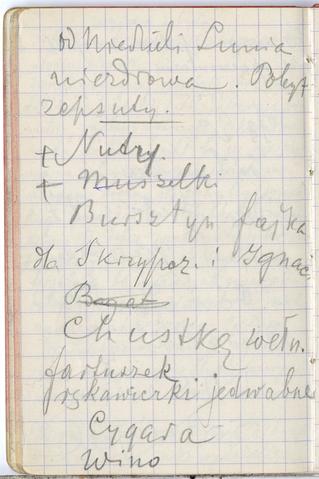 od Niedzieli Lunia
niezdrowa. Pobyt
zepsuty.
+ Nutry.
+ Muszelki
Bursztyn fajka
dla Skrzypcz. i Ignac.
Bagat
Chustkę wełn.
fartuszek
rękawiczki jedwabne
Cygara
Wino